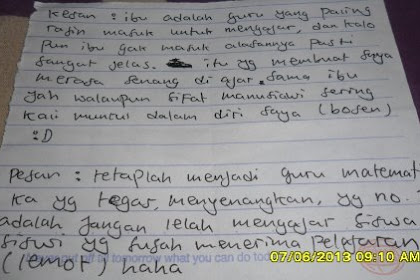 Kesan : ibu adalah guru yang paling
rajin masuk untuk mengajar, dan kalo
pun ibu gak masuk alasannya pasti
sangat jelas. itu yg membuat saya
merasa senang di ajar sama ibu
yah walaupun sifat manusiawi sering
kali muncul dalam diri saya (bosen)
:D
Pesan : tetaplah menjadi guru matemat
ka yg tegar, menyenangkan, yg no.
adalah jangan lelah mengajar siswa
siswi yg susah menerima pelajaran
off till tomorrow what you can do tod
(lemot) haha
07/06/2013 09:10 AM